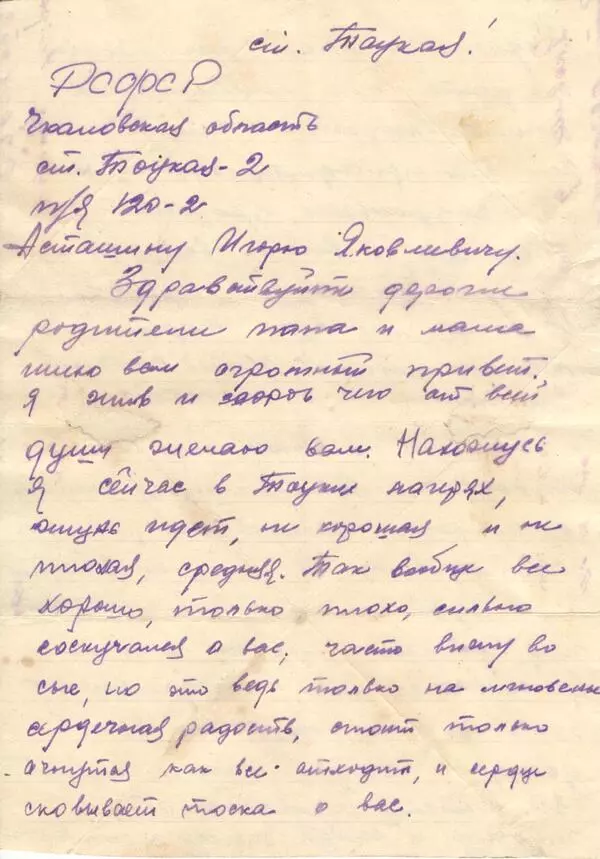 ст. Тоцкая!
РСФСР
Чкаловская область
ст. Тоцкая-2
п/я 120-2
Асташину Игорю Яковлевичу.
Здравствуйте дорогие
родители папа и мама
шлю вам огромный привет.
Я жив и здоров чего от всей
души желаю вам. Нахожусь
я сейчас в Тоцких лагерях,
жизнь идет, не хорошая и не
плохая, средняя. Так вообще все
хорошо, только плохо, сильно
соскучался о вас, часто вижу во
сне, но это ведь только на мгновенье
сердечная радость, стоит только
очнутся как все отходит, и сердце
сковывает тоска о вас.